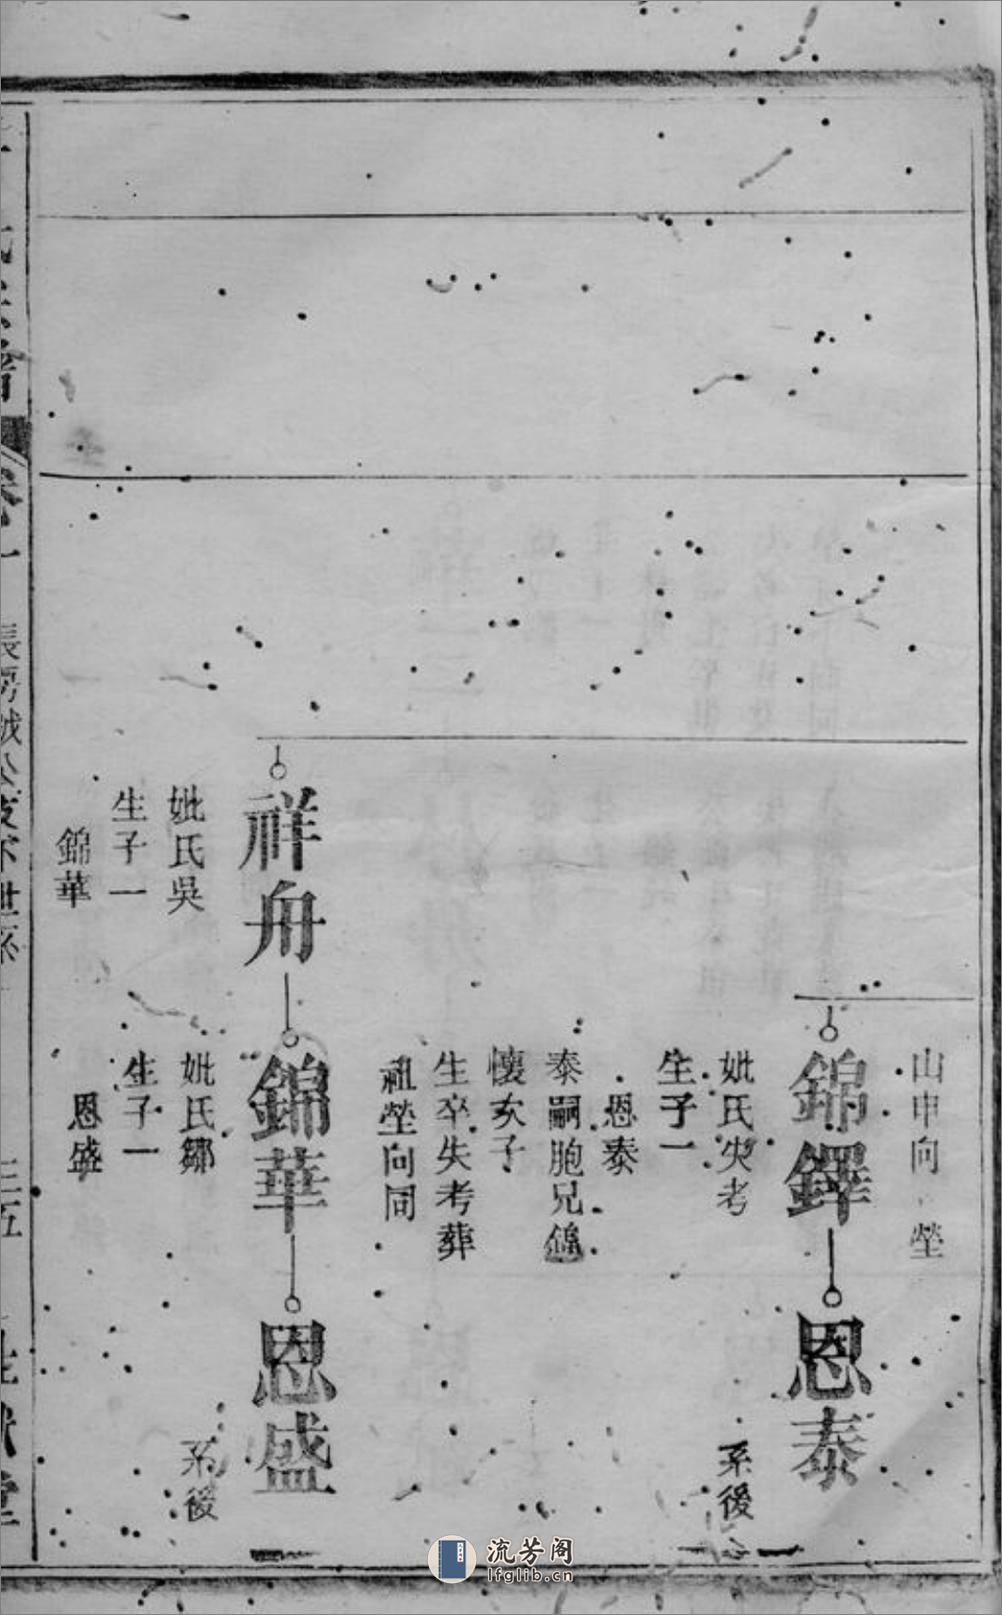 山申向 塋
錦鐸
妣氏失考
生子一
恩泰
泰嗣胞兄錦
懷次子
生卒失考葬
祖塋向同
恩泰
系後
祥舟
妣氏吳
生子一
錦華
錦華
妣氏鄒
生子一
恩盛
恩盛
系後
三五
流芳阁
lfglib.cn